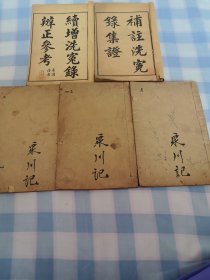 補註洗冤
錄集證
續增洗冤錄
辨正參考
泉川記
泉川記
泉川記